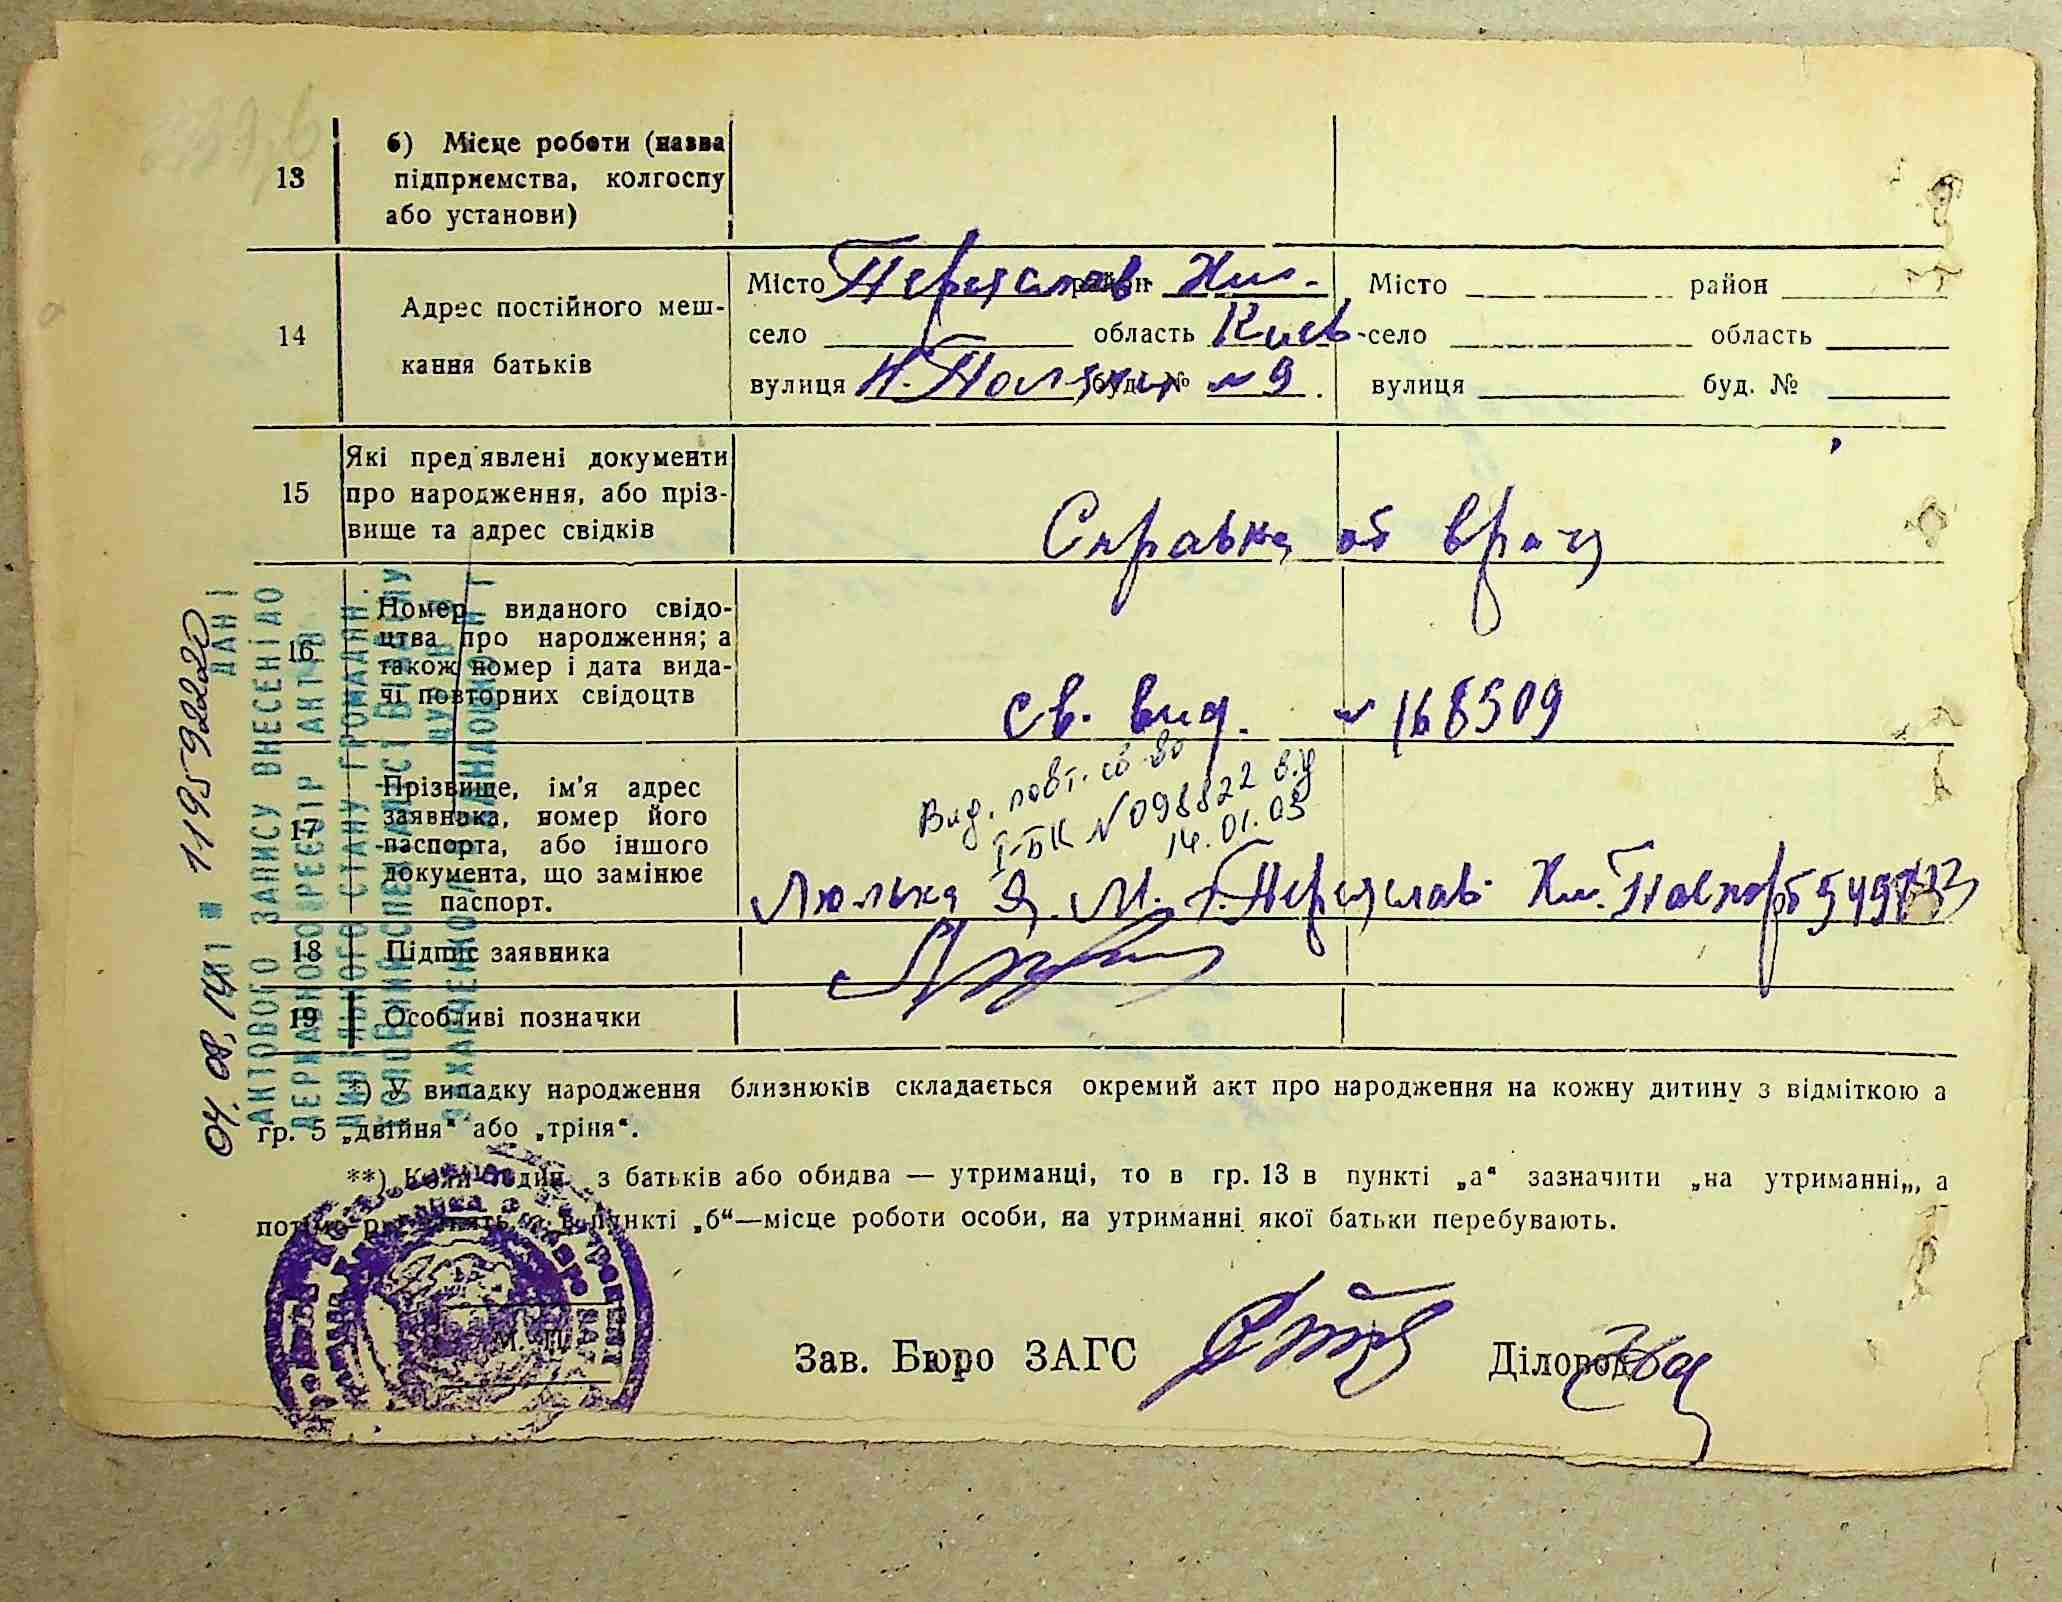 13
б) Місце роботи (назва
підприємства, колгоспу
або установи)
14
Адрес постійного меш-
кання батьків
Місто Переяслав район Хм-
село область Киев-
вулиця буд. № 9
Місто район
село область
вулиця буд. №
15
Які пред'явлені документи
про народження, або пріз-
вище та адрес свідків
Справка от врача
16
Номер виданого свідо-
цтва про народження; а
також номер і дата вида-
чі повторних свідоцтв
св. выд. № 168509
Вид. повт. св-во
І-БК №098822 від
14.01.03
17
Прізвище, ім'я адрес
заявника, номер його
паспорта, або іншого
документа, що замінює
паспорт.
Люлька Я. М. г. Переяслав Хм. Паспорт
18
Підпис заявника
19
Особливі позначки
*) У випадку народження близнюків складається окремий акт про народження на кожну дитину з відміткою а
гр. 5 „двійня“ або „тріня“.
**) Коли один з батьків або обидва — утриманці, то в гр. 13 в пункті „а“ зазначити „на утриманні„, а
в пункті „б“—місце роботи особи, на утриманні якої батьки перебувають.
М. П.
Зав. Бюро ЗАГС
Діловод
11959222
ДАНІ
АКТОВОГО ЗАПИСУ ВНЕСЕНІ ДО
ДЕРЖАВНОГО РЕЄСТР АКТІВ
ЦИВІЛЬНОГО СТАНУ ГРОМАДЯН.